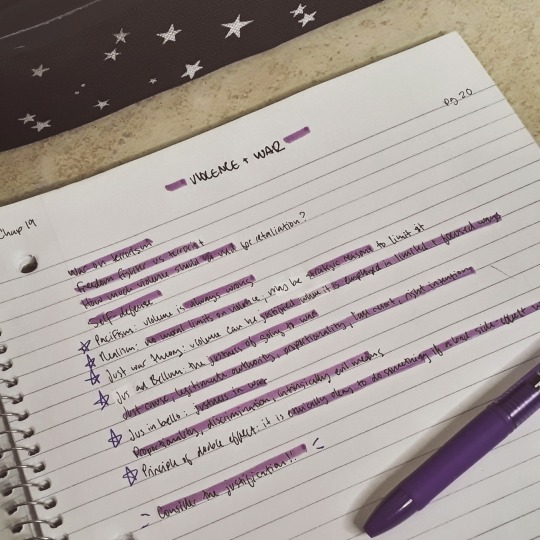 pg. 20
Chap 19
VIOLENCE + WAR
War on terrorism
Freedom fighter vs terrorist
How much violence should for retaliation?
Self defense
Pacifism: violence is always wrong
Realism: no moral limits on violence, may be strategic reasons to limit it
Just war theory: violence can be justified when it is employed in limited + focused ways
Jus ad Bellum: the justness of going to war
Just cause, legitimate authority, proportionality, last resort, right intentions
Jus in bello: justness in war
Proportionality, discrimination, intrinsically evil means
Principle of double effect: it is ethically okay to do something if a bad side effect
Consider the justification!!